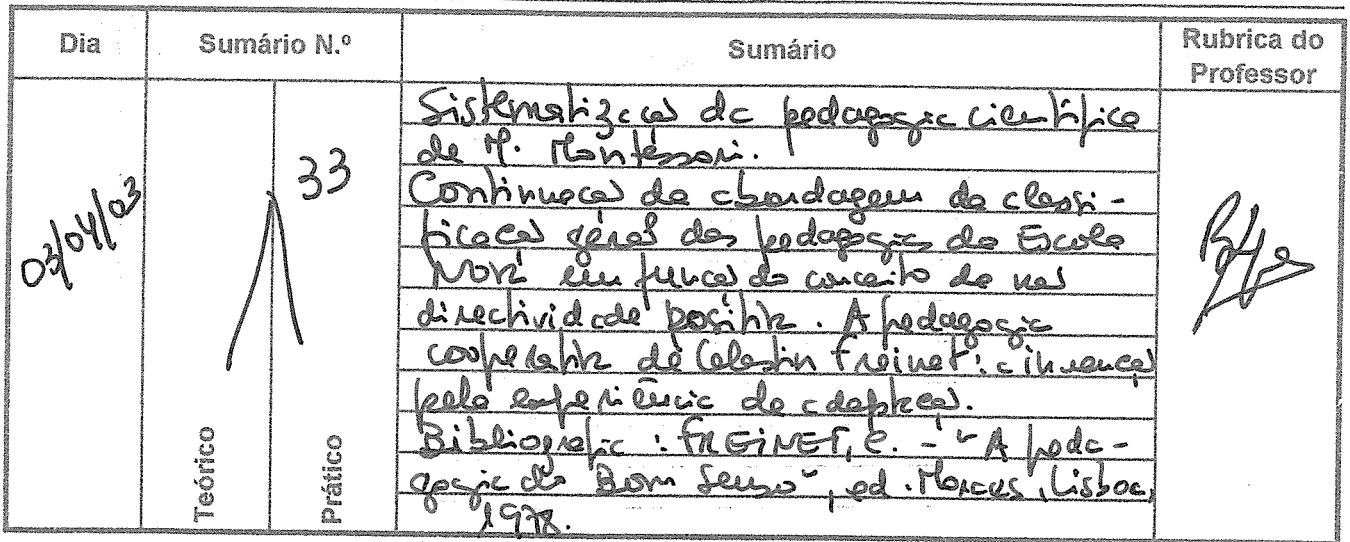 Dia Sumário N.º Sumário Rubrica do Professor
03/04/03
33
Teórico
Prático
Sistematização da pedagogia científica
de M. Montéssori.
Continuação da abordagem da classi-
ficação geral das pedagogias da Escola
Nova em função do conceito de não
directividade positiva. A pedagogia
cooperativa de Celestin Freinet: a
pela experiência de adaptação.
Bibliografia: FREINET, C. - "A peda-
gogia do Bom Senso", ed. Moraes, Lisboa,
1978.